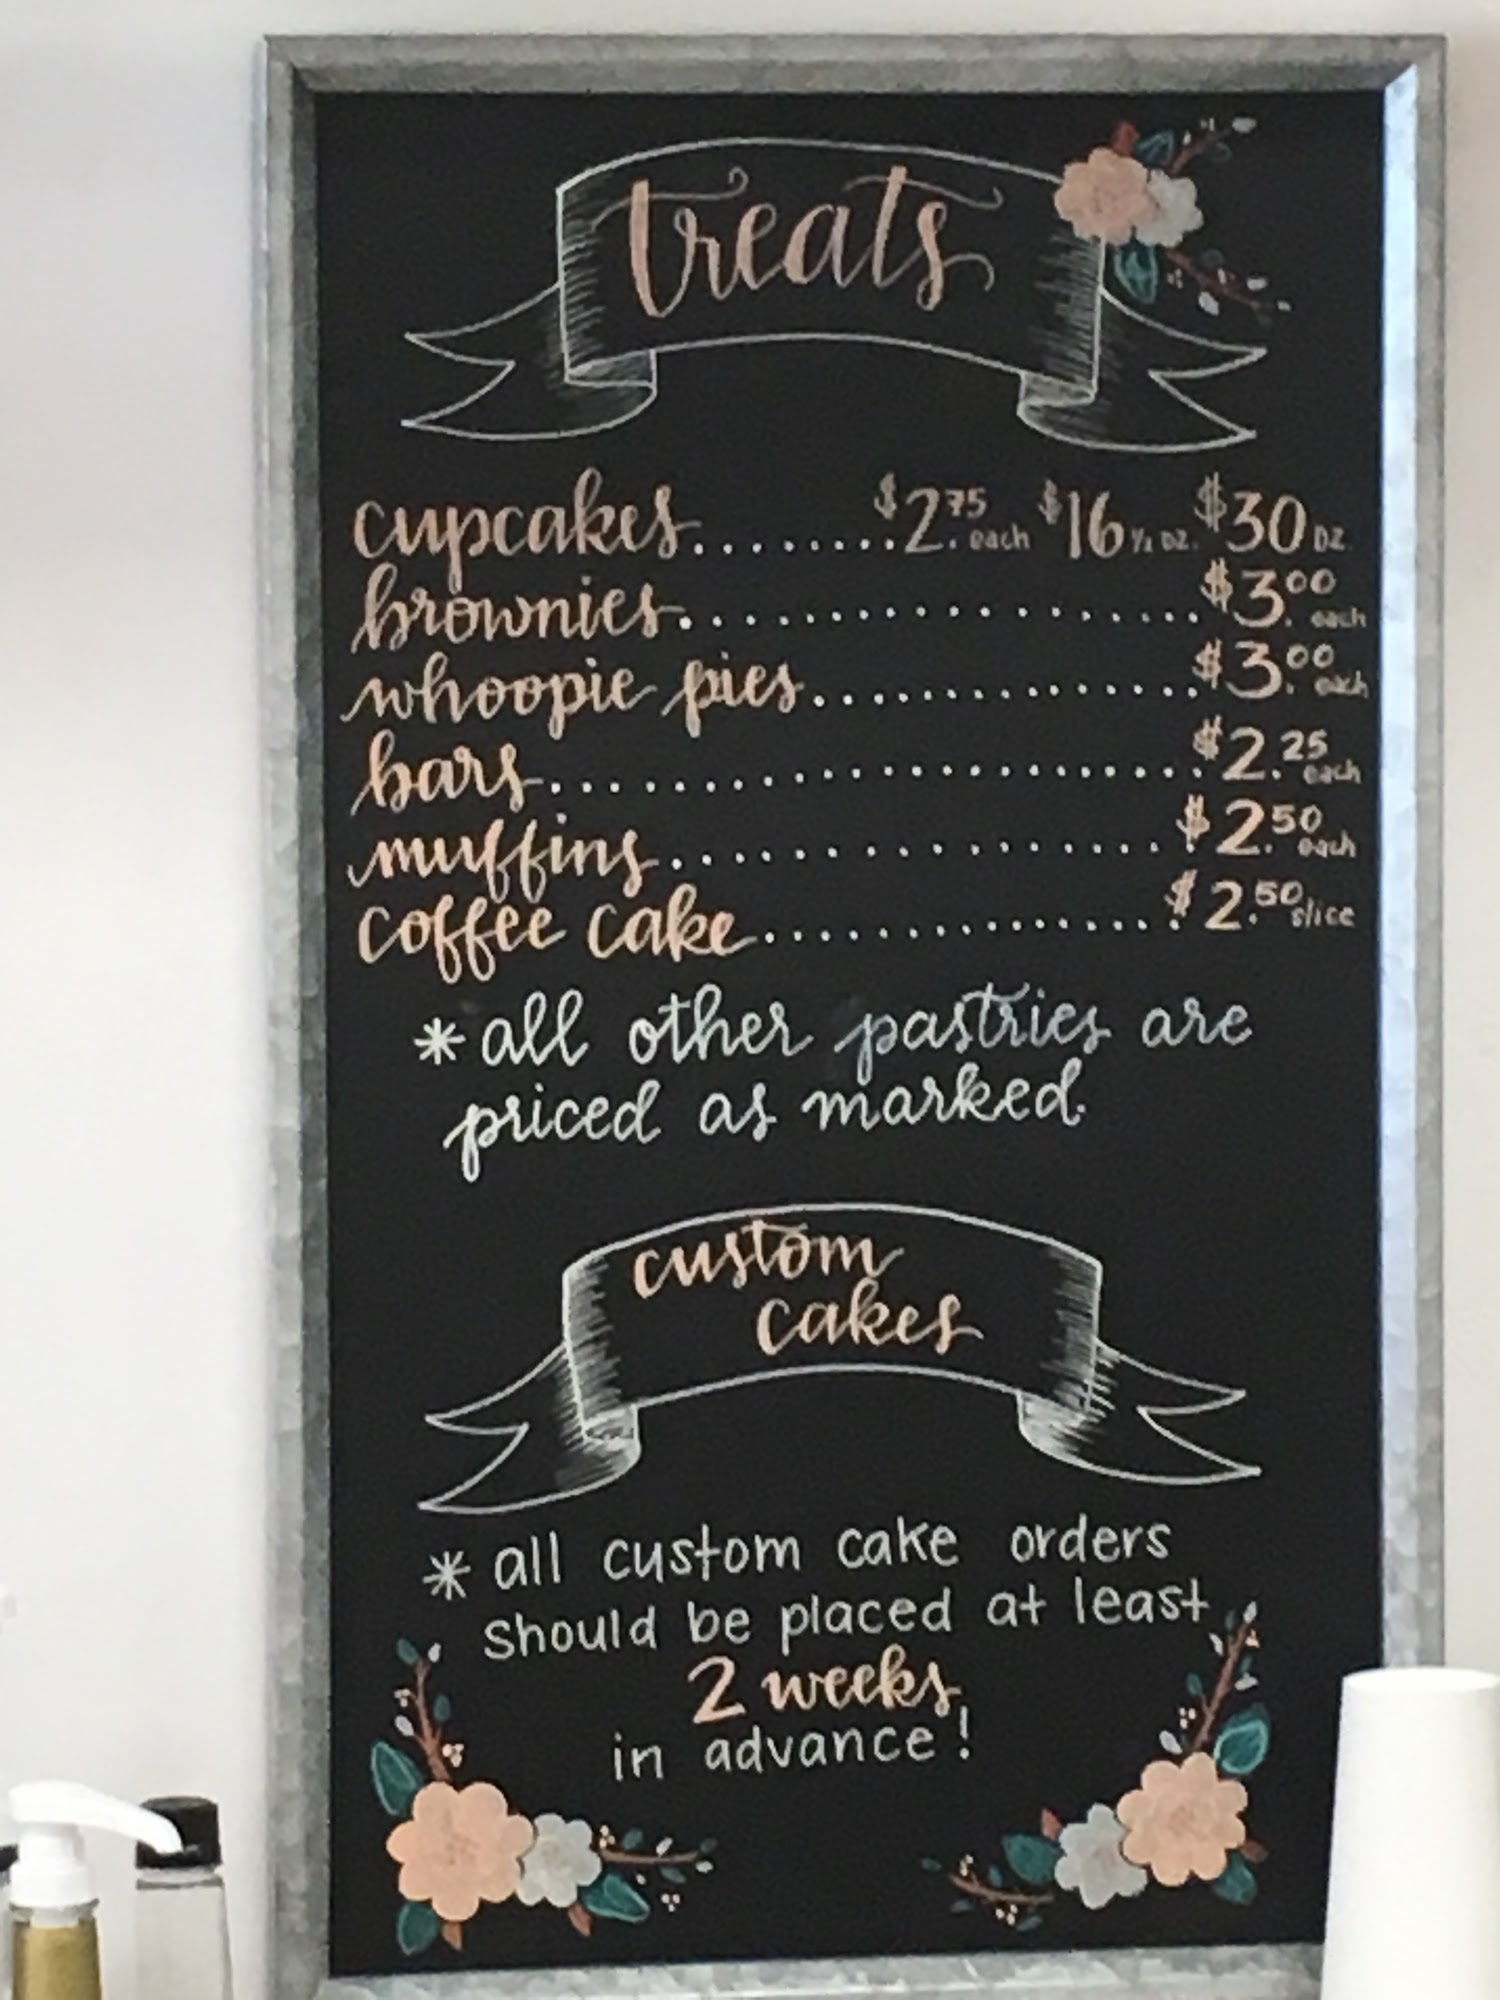 treats
cupkakes........$2.75 each $16 ½ DZ. $30 DZ.
brownies...................$3.00 each
whoopie pies..............$3.00 each
bars......................$2.25 each
muffins.................$2.50 each
coffee cake...............$2.50 slice
*all other pastries are
priced as marked.
custom
cakes
*all custom cake orders
should be placed at least
2 weeks
in advance!